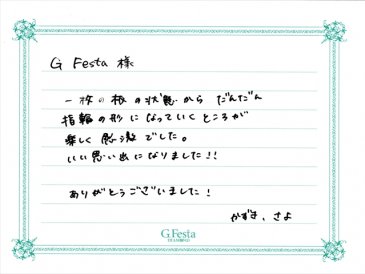 G Festa 様
一枚の板の状態から だんだん
指輪の形になっていくところが
楽しく 感激でした。
いい思い出になりました!!
ありがとうございました!
かずま、さよ
G.Festa